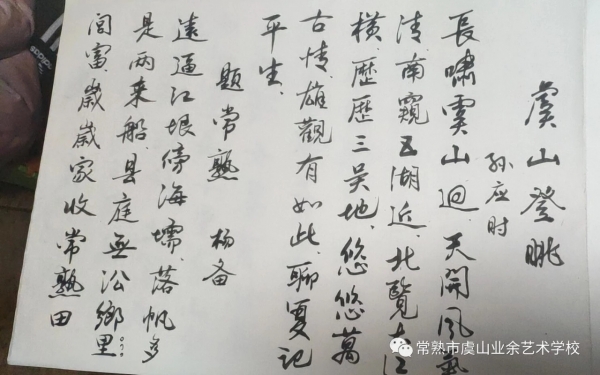 虞山登眺
孙应时
長嘯虞山迴天開風氣
清南窺五湖近北覽大江
橫歷歷三吴地悠悠萬
古情雄觀有如此聊复记
平生
题常熟 杨备
遠逼江垠傍海壖落帆多
是两来船县庭無讼鄉里
闾富歲歲家收常熟田
常熟市虞山业余艺术学校